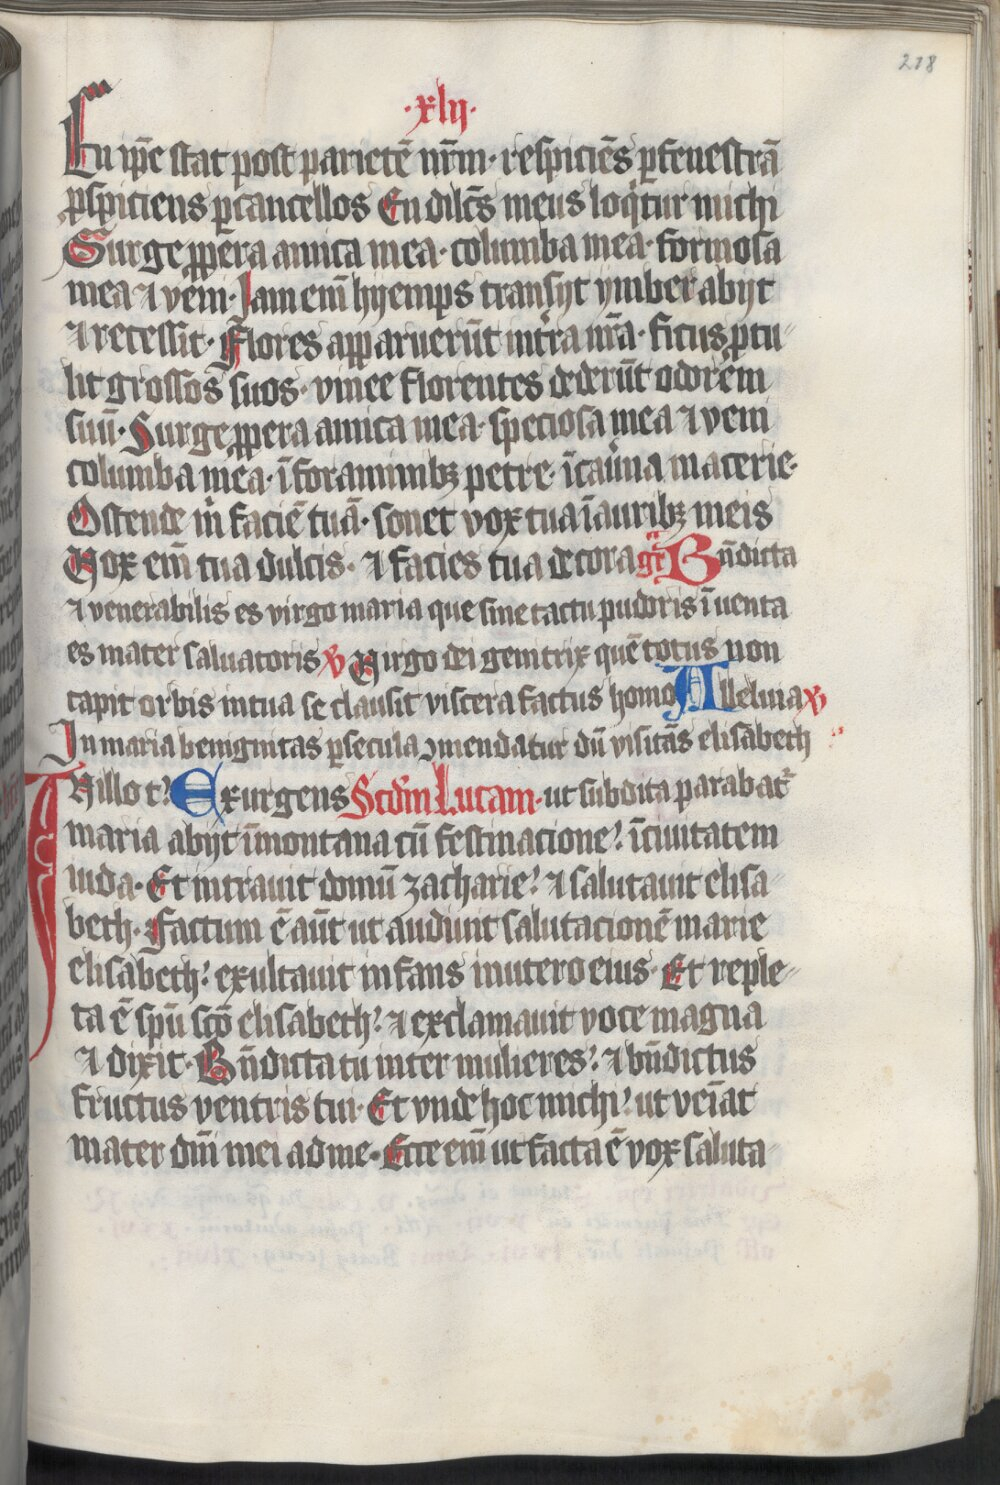 218
·xlij·
En ip̄e stat post parietē nr̄m· respiciēs ꝑ fenestrā
ꝓspiciens ꝑ cancellos En dilc̄s meus loqͥtur michi
Surge ꝓpera amica mea· columba mea· formosa
mea ⁊ veni· Iam em̄ hyemps transijt ymber abijt
⁊ recessit· Flores apparuerūt in tr̄a nr̄a· ficus ꝓtu
lit grossos suos· vinee florentes dederūt odorem
suū· Surge ꝓpera amica mea· speciosa mea ⁊ veni
columba mea· ī foraminibꝫ petre· ī cauͥna macerie·
Ostende mͥ faciē tuā· sonet vox tua ī auribꝫ meis
Vox em̄ tua dulcis· ⁊ facies tua decora gr̄ Bn̄dicta
⁊ venerabilis es virgo maria que sine tactu pudoris īuenta
es mater saluatoris ℣ Virgo dei genitrix quē totus non
capit orbis in tua se clausit viscera factus homo Alleluia ℣
In maria benignitas ꝑ secula ↄmendatur dū visitās elisabeth
Nillo t? Exurgens Scdm̄ Lucam· ut subdita parabat᷑
maria abijt ī montana cū festinacione? ī ciuitatem
iuda· Et intrauit domū zacharie? ⁊ salutauit elisa
beth· Factum ē aūt ut audiuit salutacionē marie
elisabeth? exultauit infans in utero eius· Et reple
ta ē spū scō elisabeth? ⁊ exclamauit voce magna
⁊ dixit· Bn̄dicta tu inter mulieres? ⁊ bn̄dictus
fructus ventris tui· Et vnde hoc michi? ut veīat
mater dn̄i mei ad me· Ecce em̄ ut facta ē vox saluta